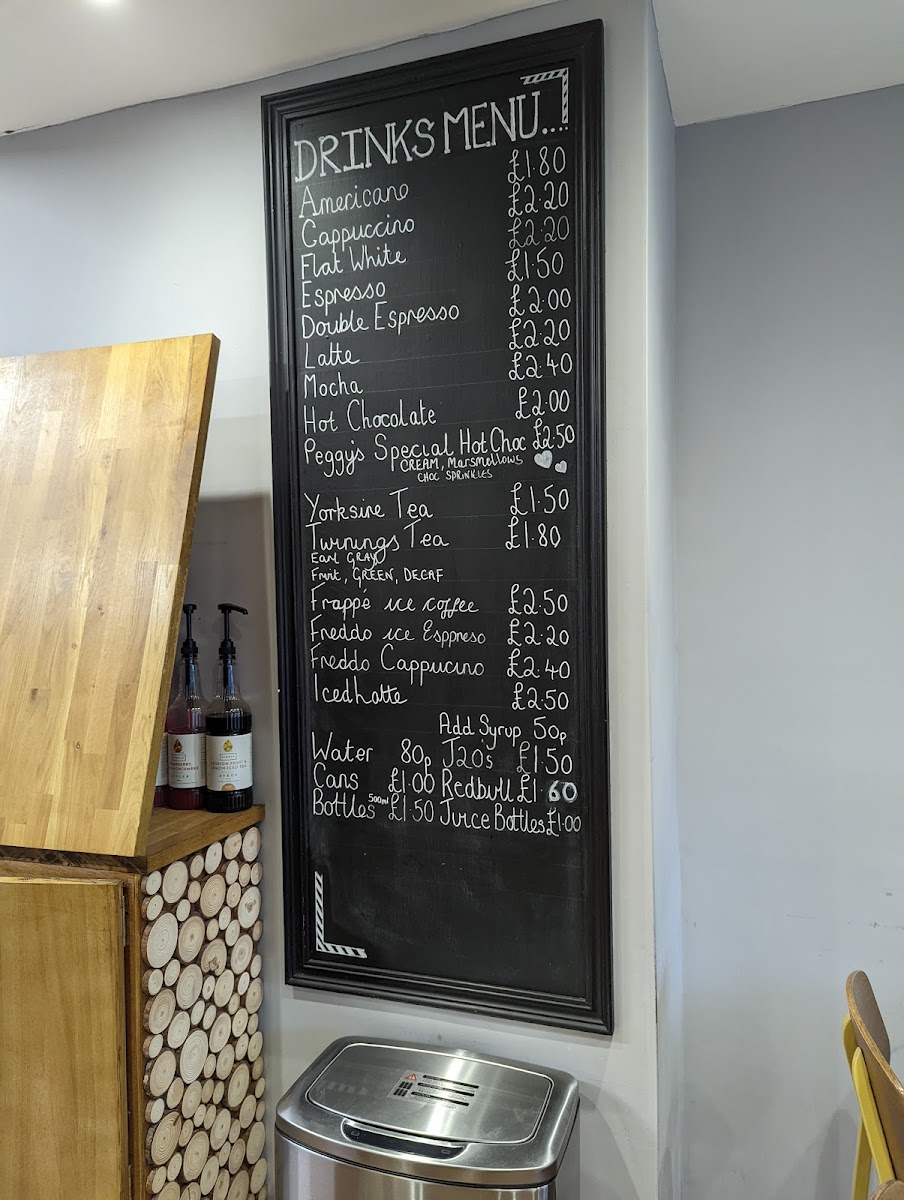 DRINKS MENU....
Americano £1.80
Cappuccino £2.20
Flat White £2.20
Espresso £1.50
Double Espresso £2.00
Latte £2.20
Mocha £2.40
Hot Chocolate £2.00
Peggy's Special Hot Choc £2.50
CREAM, Marsmellows
CHOC SPRINKLES
Yorksire Tea £1.50
Twinings Tea £1.80
Earl GRAY
Fruit, GREEN, DECAF
Frappé ice coffee £2.50
Freddo ice Esppreso £2.20
Freddo Cappucino £2.40
Iced latte £2.50
Add Syrup 50p
Water 80p J20's £1.50
Cans £1.00 Redbull £1.60
Bottles 500ml £1.50 Juice Bottles £1.00